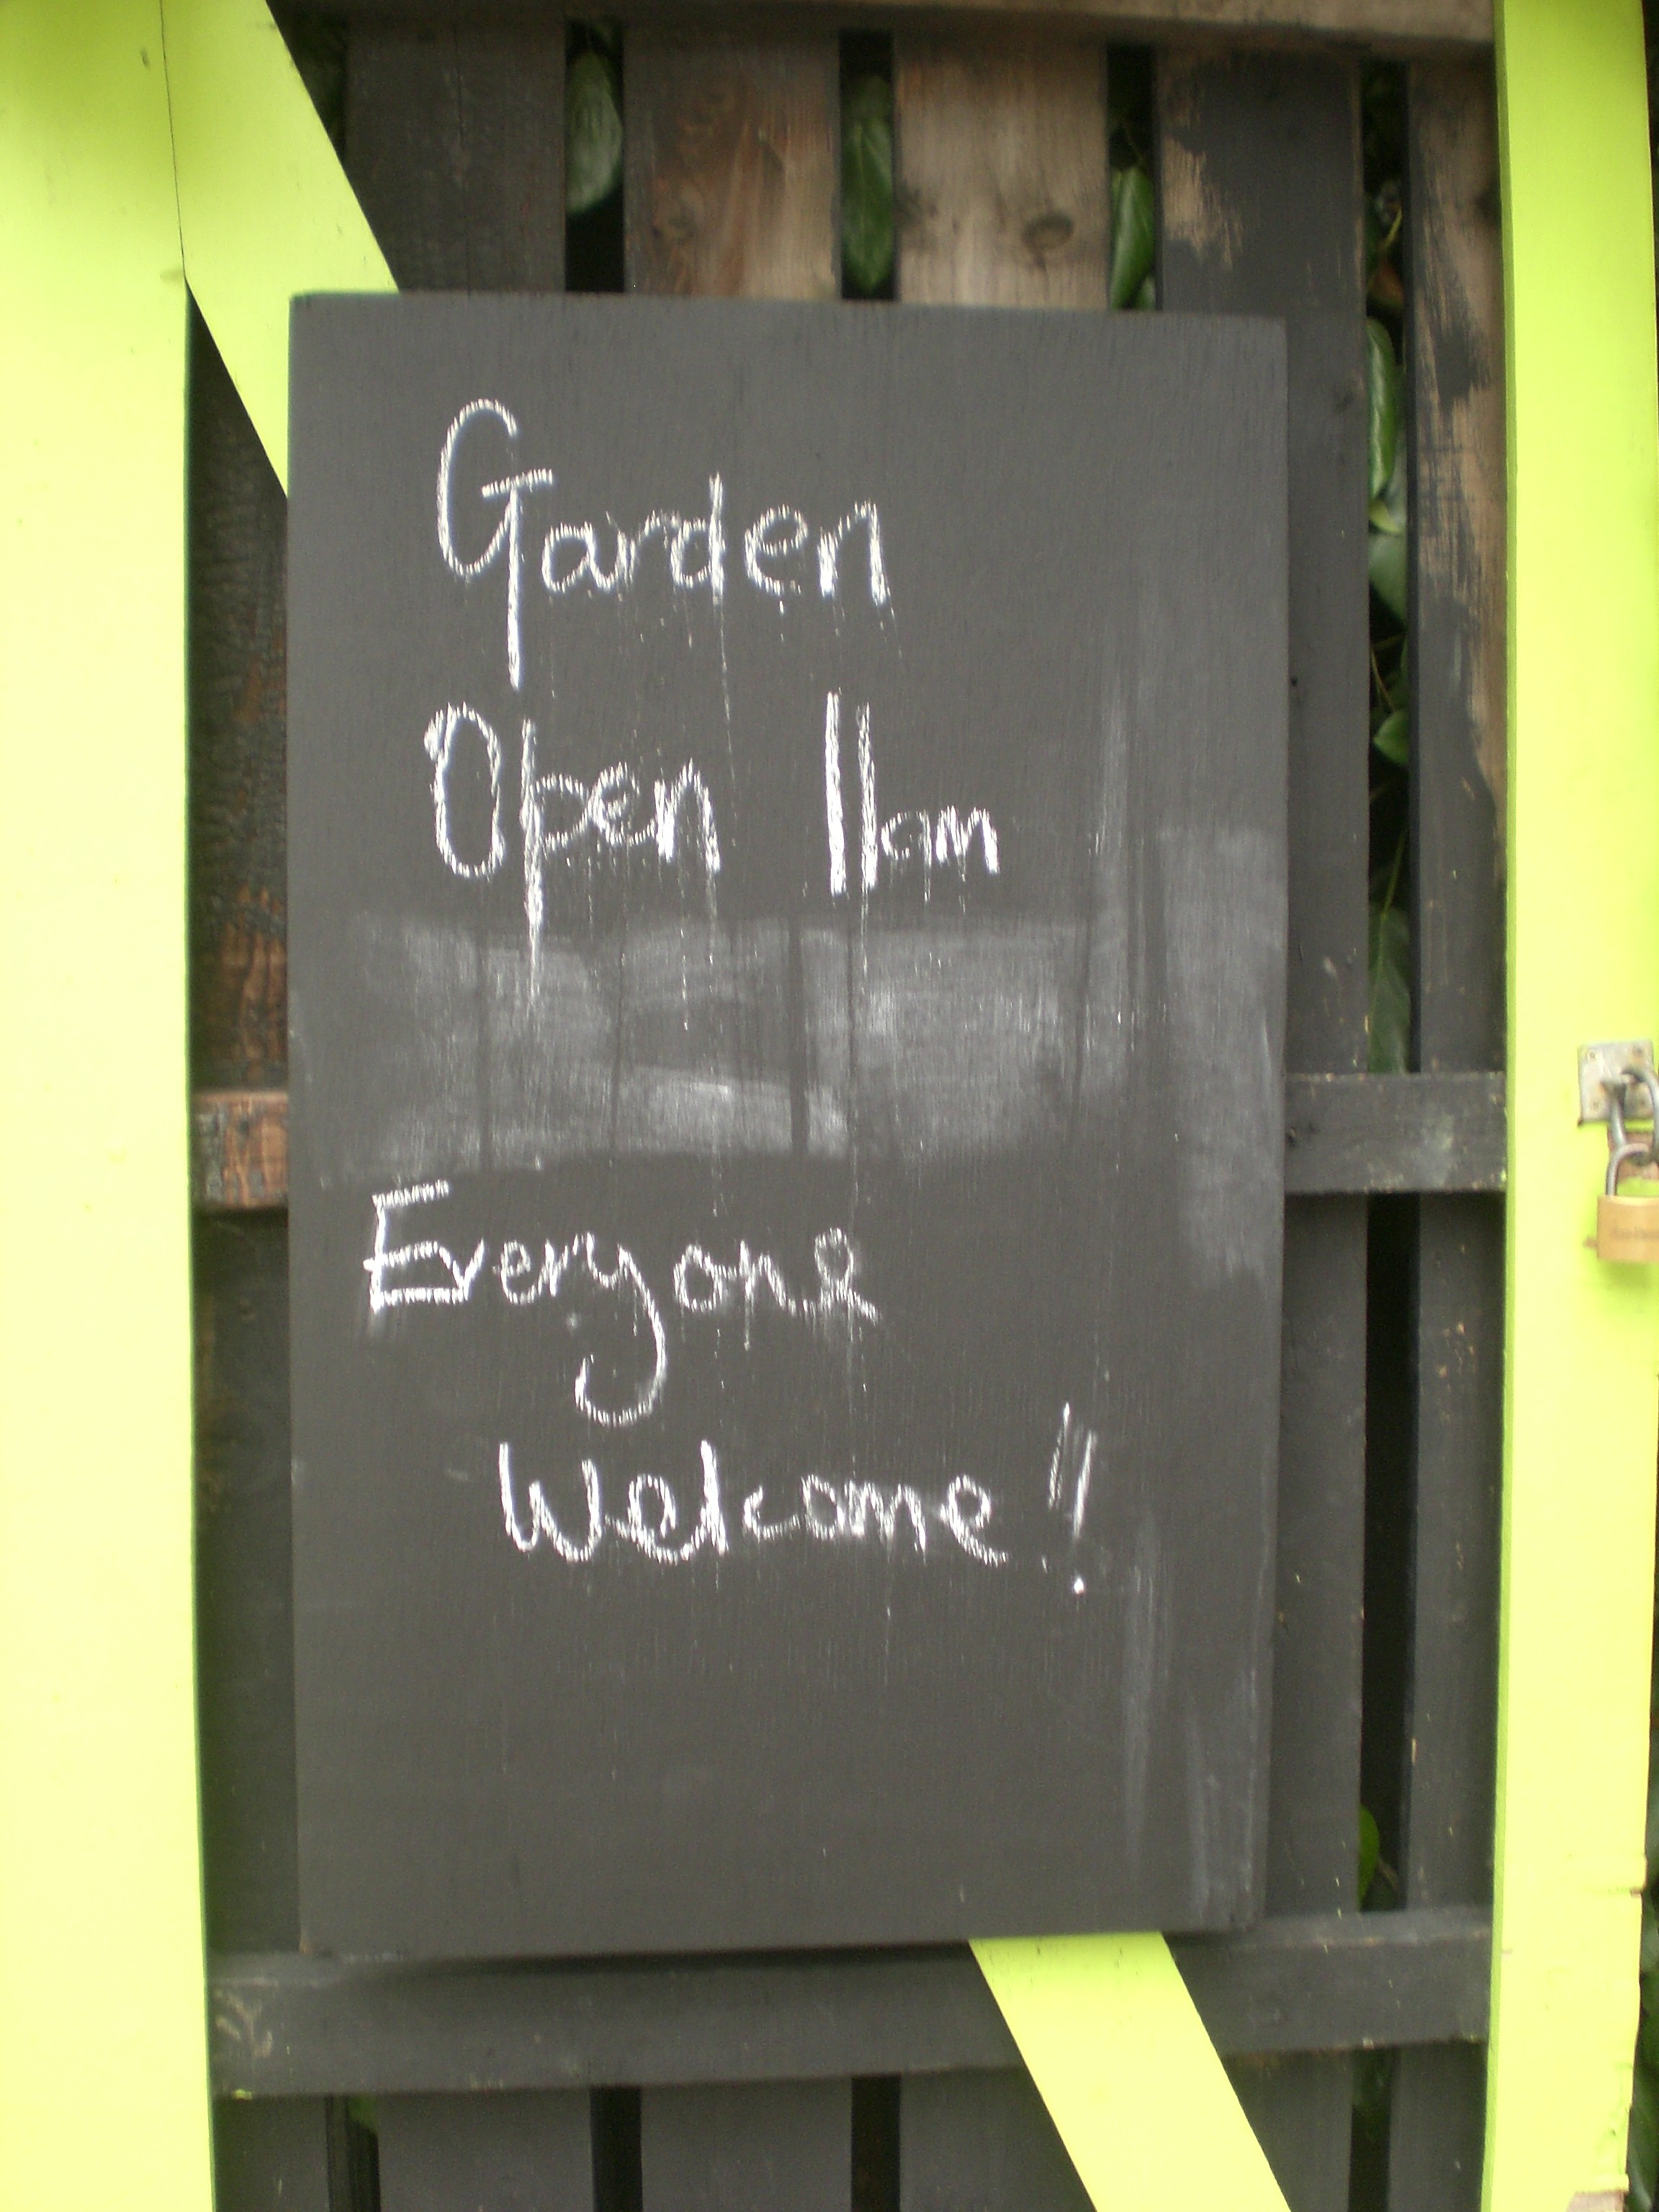 Garden
Open 11am
Everyone
Welcome!!